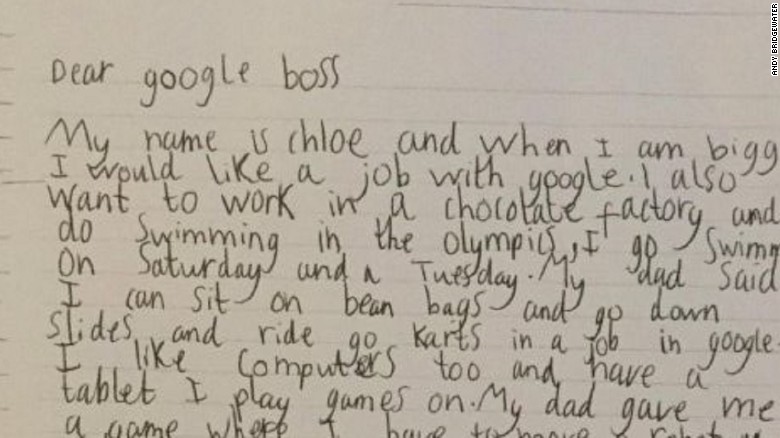 Dear google boss
My name is chloe and when I am bigg
I would like a job with google. I also
want to work in a chocolate factory and
do swimming in the olympics, I go swimm
on Saturday and a Tuesday. My dad said
I can sit on bean bags and go down
slides and ride go karts in a job in google.
I like computers too and have a
tablet I play games on. My dad gave me
a game where I have to move a
ANDY BRIDGEWATER